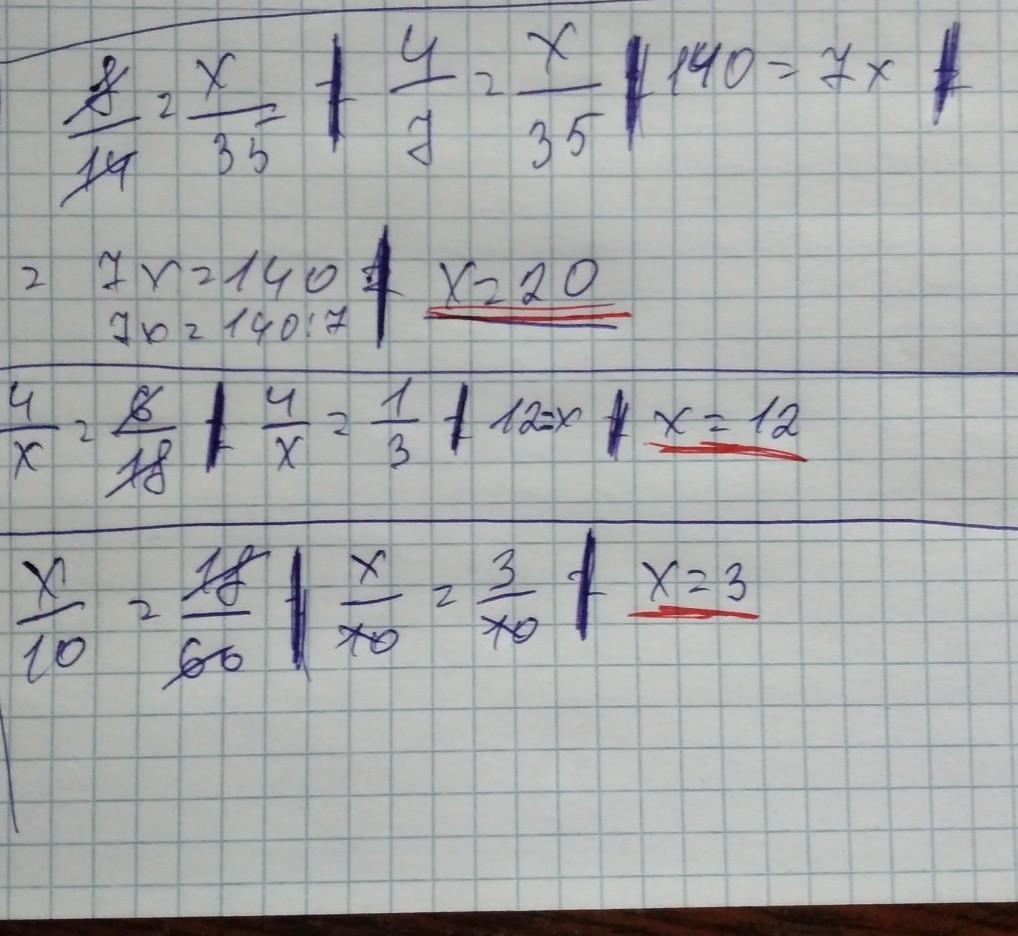 8/14 = x/35 | 4/7 = x/35 | 140 = 7x |
= 7x = 140 | x = 20
7x = 140:7
4/x = 6/18 | 4/x = 1/3 | 12=x | x = 12
x/10 = 18/60 | x/10 = 3/10 | x = 3